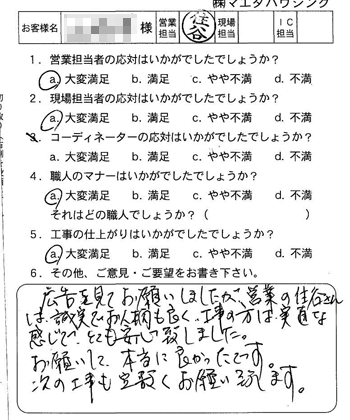 ㈱マエダハウジング
お客様名 様 営業担当 住谷 現場担当 ＩＣ担当
１．営業担当者の応対はいかがでしたでしょうか？
a. 大変満足 b. 満足 c. やや不満 d. 不満
２．現場担当者の応対はいかがでしたでしょうか？
a. 大変満足 b. 満足 c. やや不満 d. 不満
３．コーディネーターの応対はいかがでしたでしょうか？
a. 大変満足 b. 満足 c. やや不満 d. 不満
４．職人のマナーはいかがでしたでしょうか？
a. 大変満足 b. 満足 c. やや不満 d. 不満
それはどの職人でしょうか？（ ）
５．工事の仕上がりはいかがでしたでしょうか？
a. 大変満足 b. 満足 c. やや不満 d. 不満
６．その他、ご意見・ご要望をお書き下さい。
広告を見てお願いしましたが、営業の住谷さん
は、誠実でお人柄も良く、工事の方は、実直な
感じで、とても安心致しました。
お願いして、本当に良かったです。
次の工事も宜敷くお願い致します。